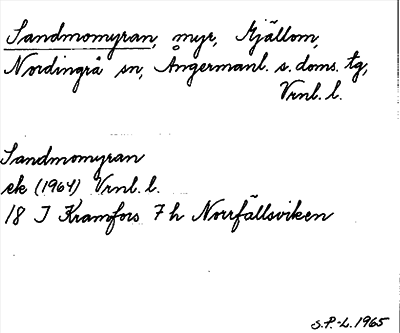 Sandmomyran, myr, Gjällom,
Nordingrå sn, Ångermanl. s. doms. tg,
Vrnl. l.
Sandmomyran
ek (1964) Vrnl. l.
18 J Kramfors 7 h Norrfällsviken
S.P.-L. 1965